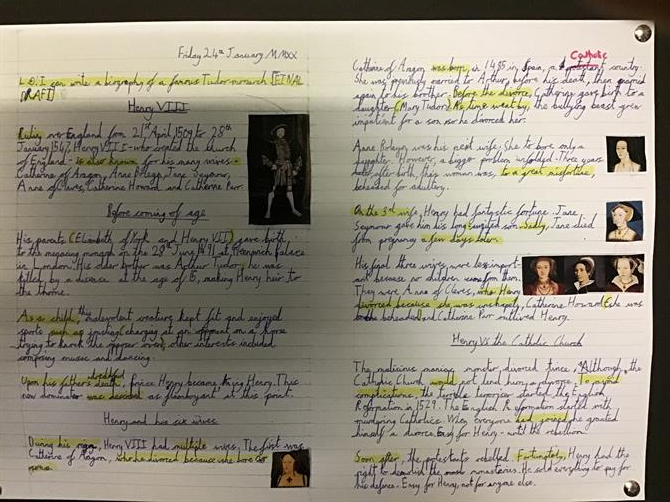 Friday 24th January MMXX
L.O: I can write a biography of a famous Tudor monarch [FINAL
DRAFT]
Henry VIII
Ruling over England from 21st April 1509 to 28th
January 1547, Henry VIII - who created the church
of England - is also known for his many wives -
Catherine of Aragon, Anne Boleyn, Jane Seymour,
Anne of Cleves, Catherine Howard and Catherine Parr.
Before coming of age
His parents (Elizabeth of York and Henry VII) gave birth
to the monarch on the 28th June 1491, at Greenwich palace
in London. His older brother was Arthur Tudor; he was
killed by a disease at the age of 15, making Henry heir to
the throne.
As a child, this malevolent creature kept fit and enjoyed
sports such as charging at an opponent on a horse
trying to knock the over; other interests included
composing music and dancing.
Upon his father's death, prince Henry became King Henry. This
new dominator was as flamboyant at this point.
Henry and his six wives
During his reign, Henry VIII had multiple wives. The first was
Catherine of Aragon, who he divorced because she bore no
Catherine of Aragon was born in 1485 in Spain, a Catholic country.
She was previously married to Arthur before his death, then married
again to his brother. Before the divorce, Catherine gave birth to a
daughter (Mary Tudor). As time went by, the bullying beast grew
impatient for a son so he divorced her.
Anne Boleyn was his next wife. She too bore only a
daughter. However, a bigger problem unfolded. Three years
later, after birth, this woman was, to a great misfortune,
beheaded for adultery.
On the 3rd wife, Henry had fantastic fortune. Jane
Seymour gave him his long awaited son. Sadly, Jane died
from pregnancy a few days later.
His final three wives were less import-
ant because no children from them.
They were Anne of Cleves, who Henry
divorced because she was , Catherine Howard (she was
to be beheaded) and Catherine Parr outlived Henry.
Henry Vs the Catholic Church
The malicious maniac divorced since, Although the
Catholic Church would not lend him a divorce. To avoid
complications, the terrible started the English
Reformation in 1529. The English Reformation started with
murdering Catholics. When everyone had joined he granted
himself a divorce. Easy for Henry - until the rebellion.
Soon after, the protestants rebelled. Fortunately, Henry had the
right to demolish the monasteries. He sold everything to pay for
his defence. Easy for Henry, not for anyone else.